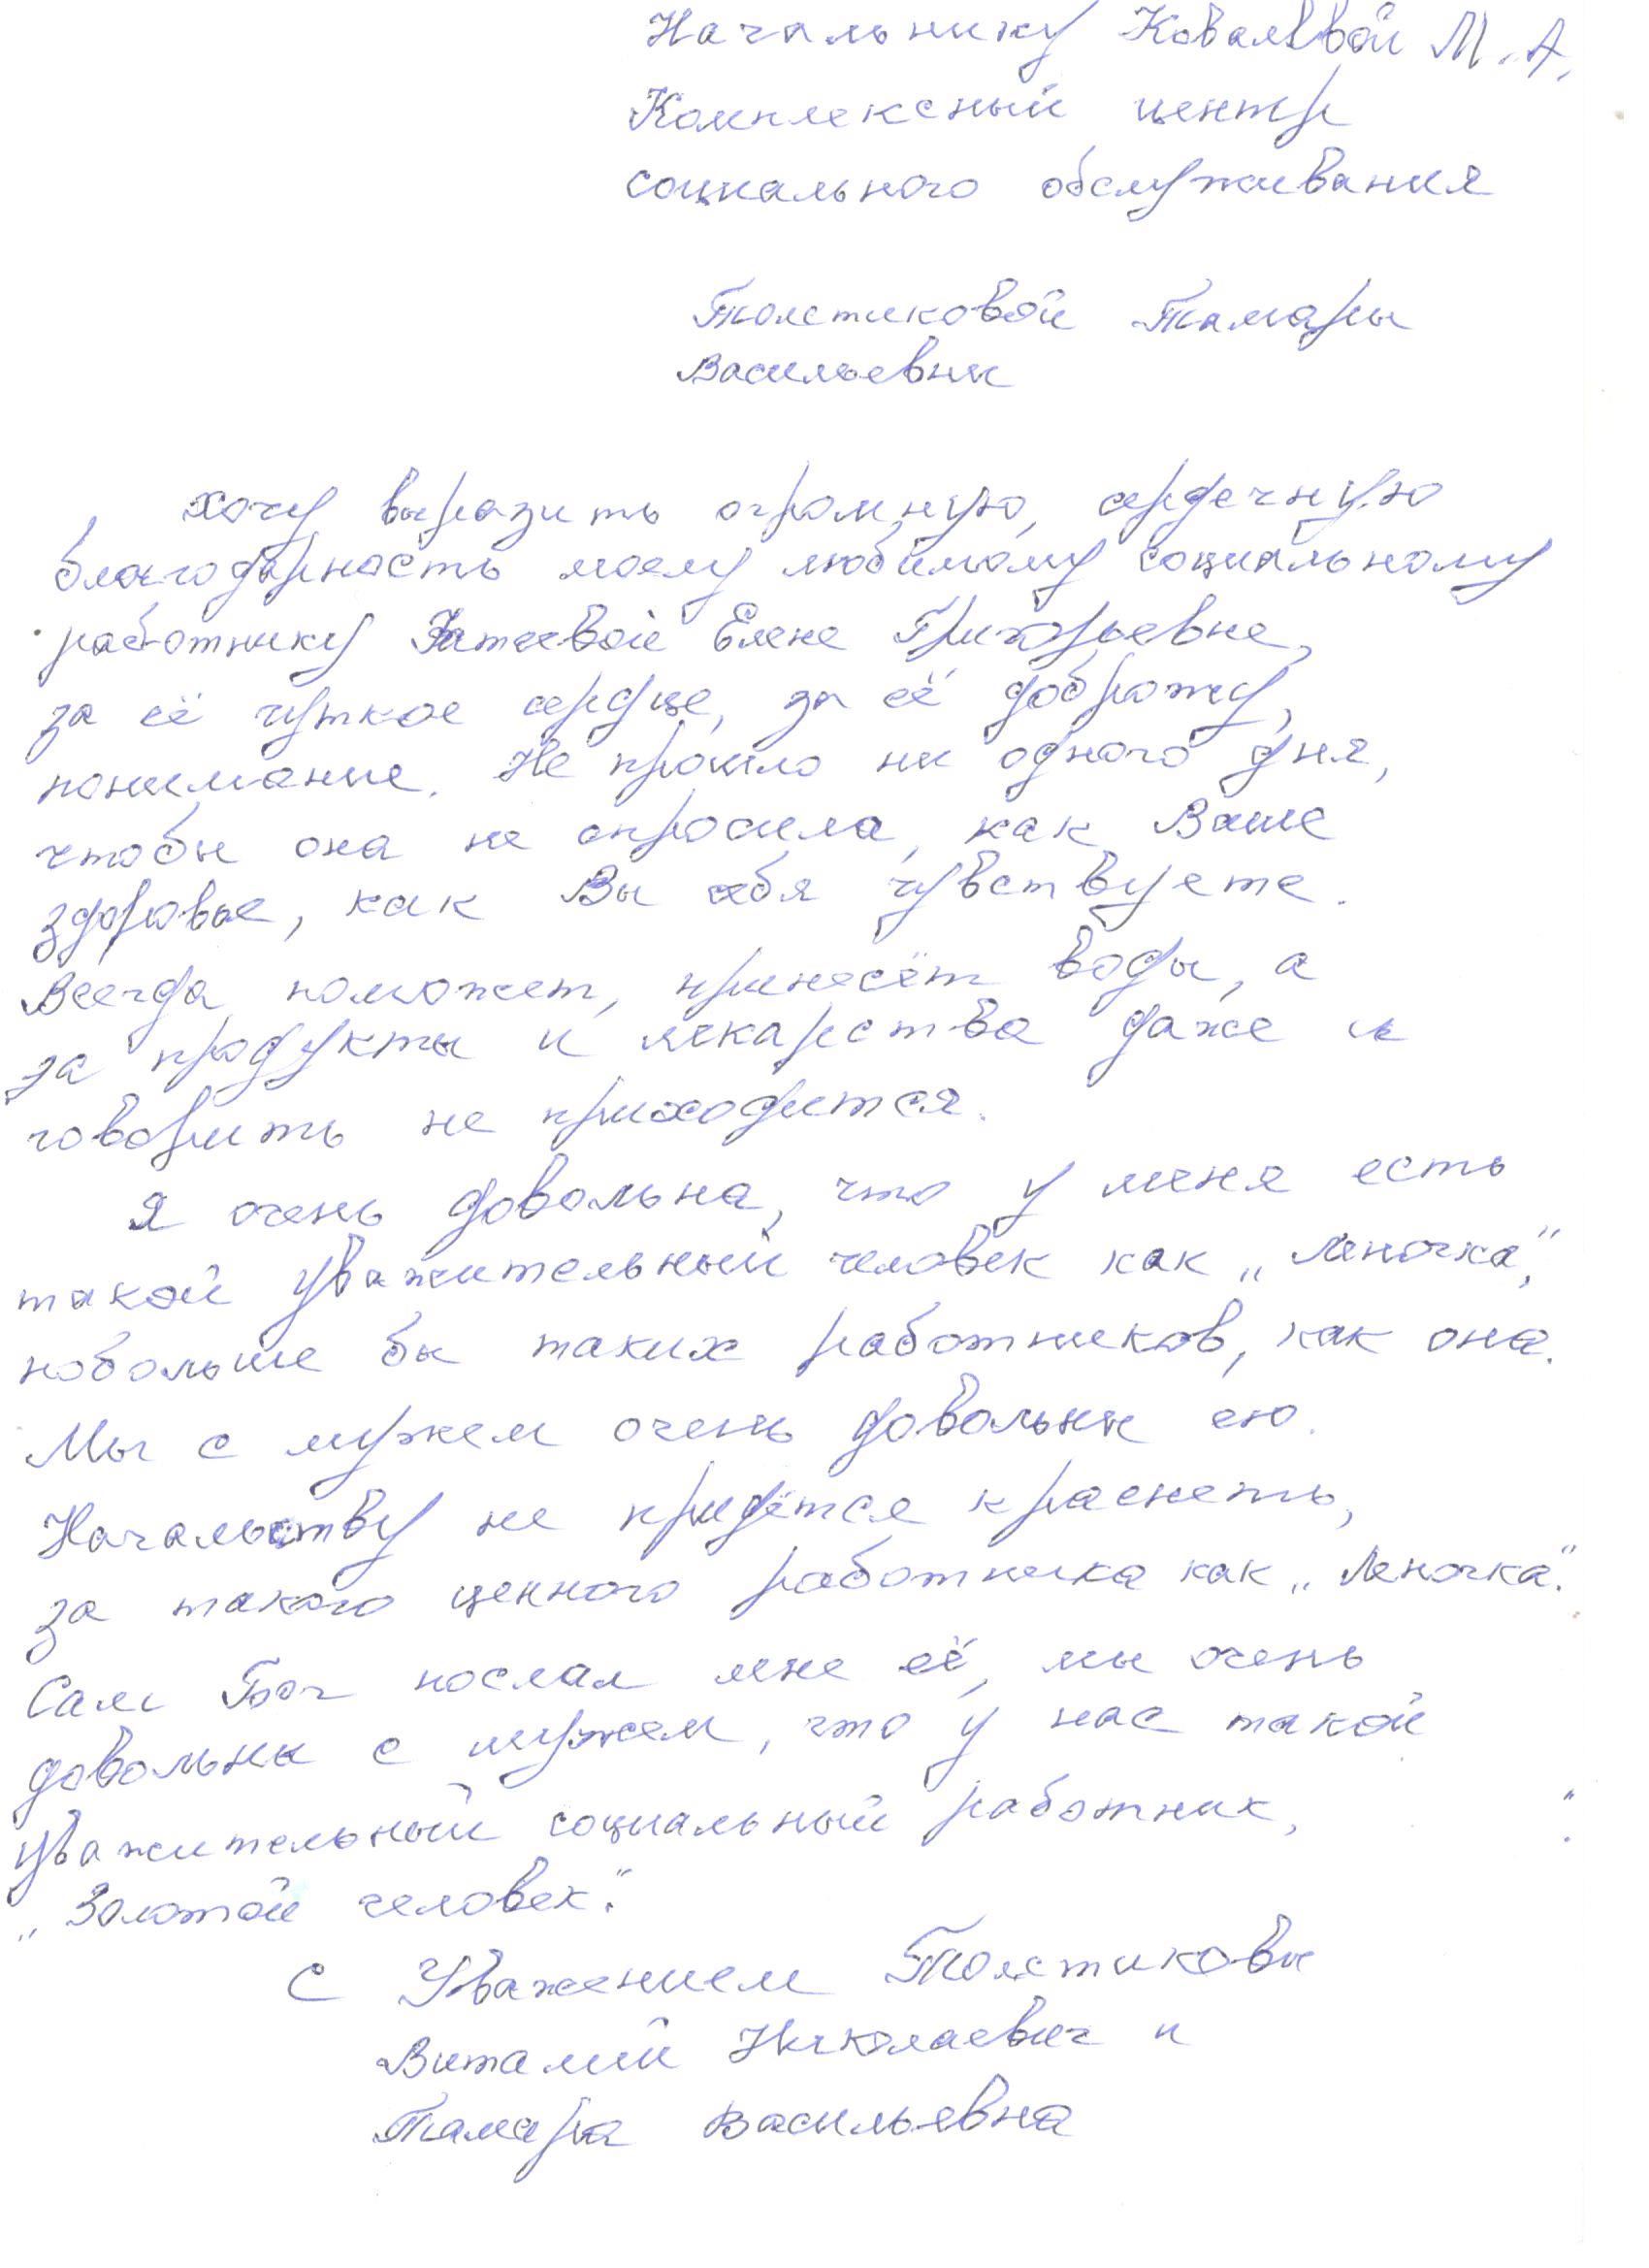 Начальнику Ковалевой М.А.
Комплексный центр
социального обслуживания
Толстиковой Тамары
Васильевны
хочу выразить огромную, сердечную
благодарность моему любимому социальному
работнику Елене Григорьевне,
за её чуткое сердце, за её доброту,
понимание. Не прошло ни одного дня,
чтобы она не спросила, как Ваше
здоровье, как Вы себя чувствуете.
Всегда поможет, принесёт воды, а
за продукты и лекарства даже и
говорить не приходится.
Я очень довольна, что у меня есть
такой уважительный человек как „Леночка",
побольше бы таких работников, как она.
Мы с мужем очень довольны ею.
Начальству не придётся краснеть,
за такого ценного работника как „Леночка".
Сам Бог послал мне её, мы очень
довольны с мужем, что у нас такой
уважительный социальный работник,
„Золотой человек".
С Уважением Толстиковы
Виталий Николаевич и
Тамара Васильевна